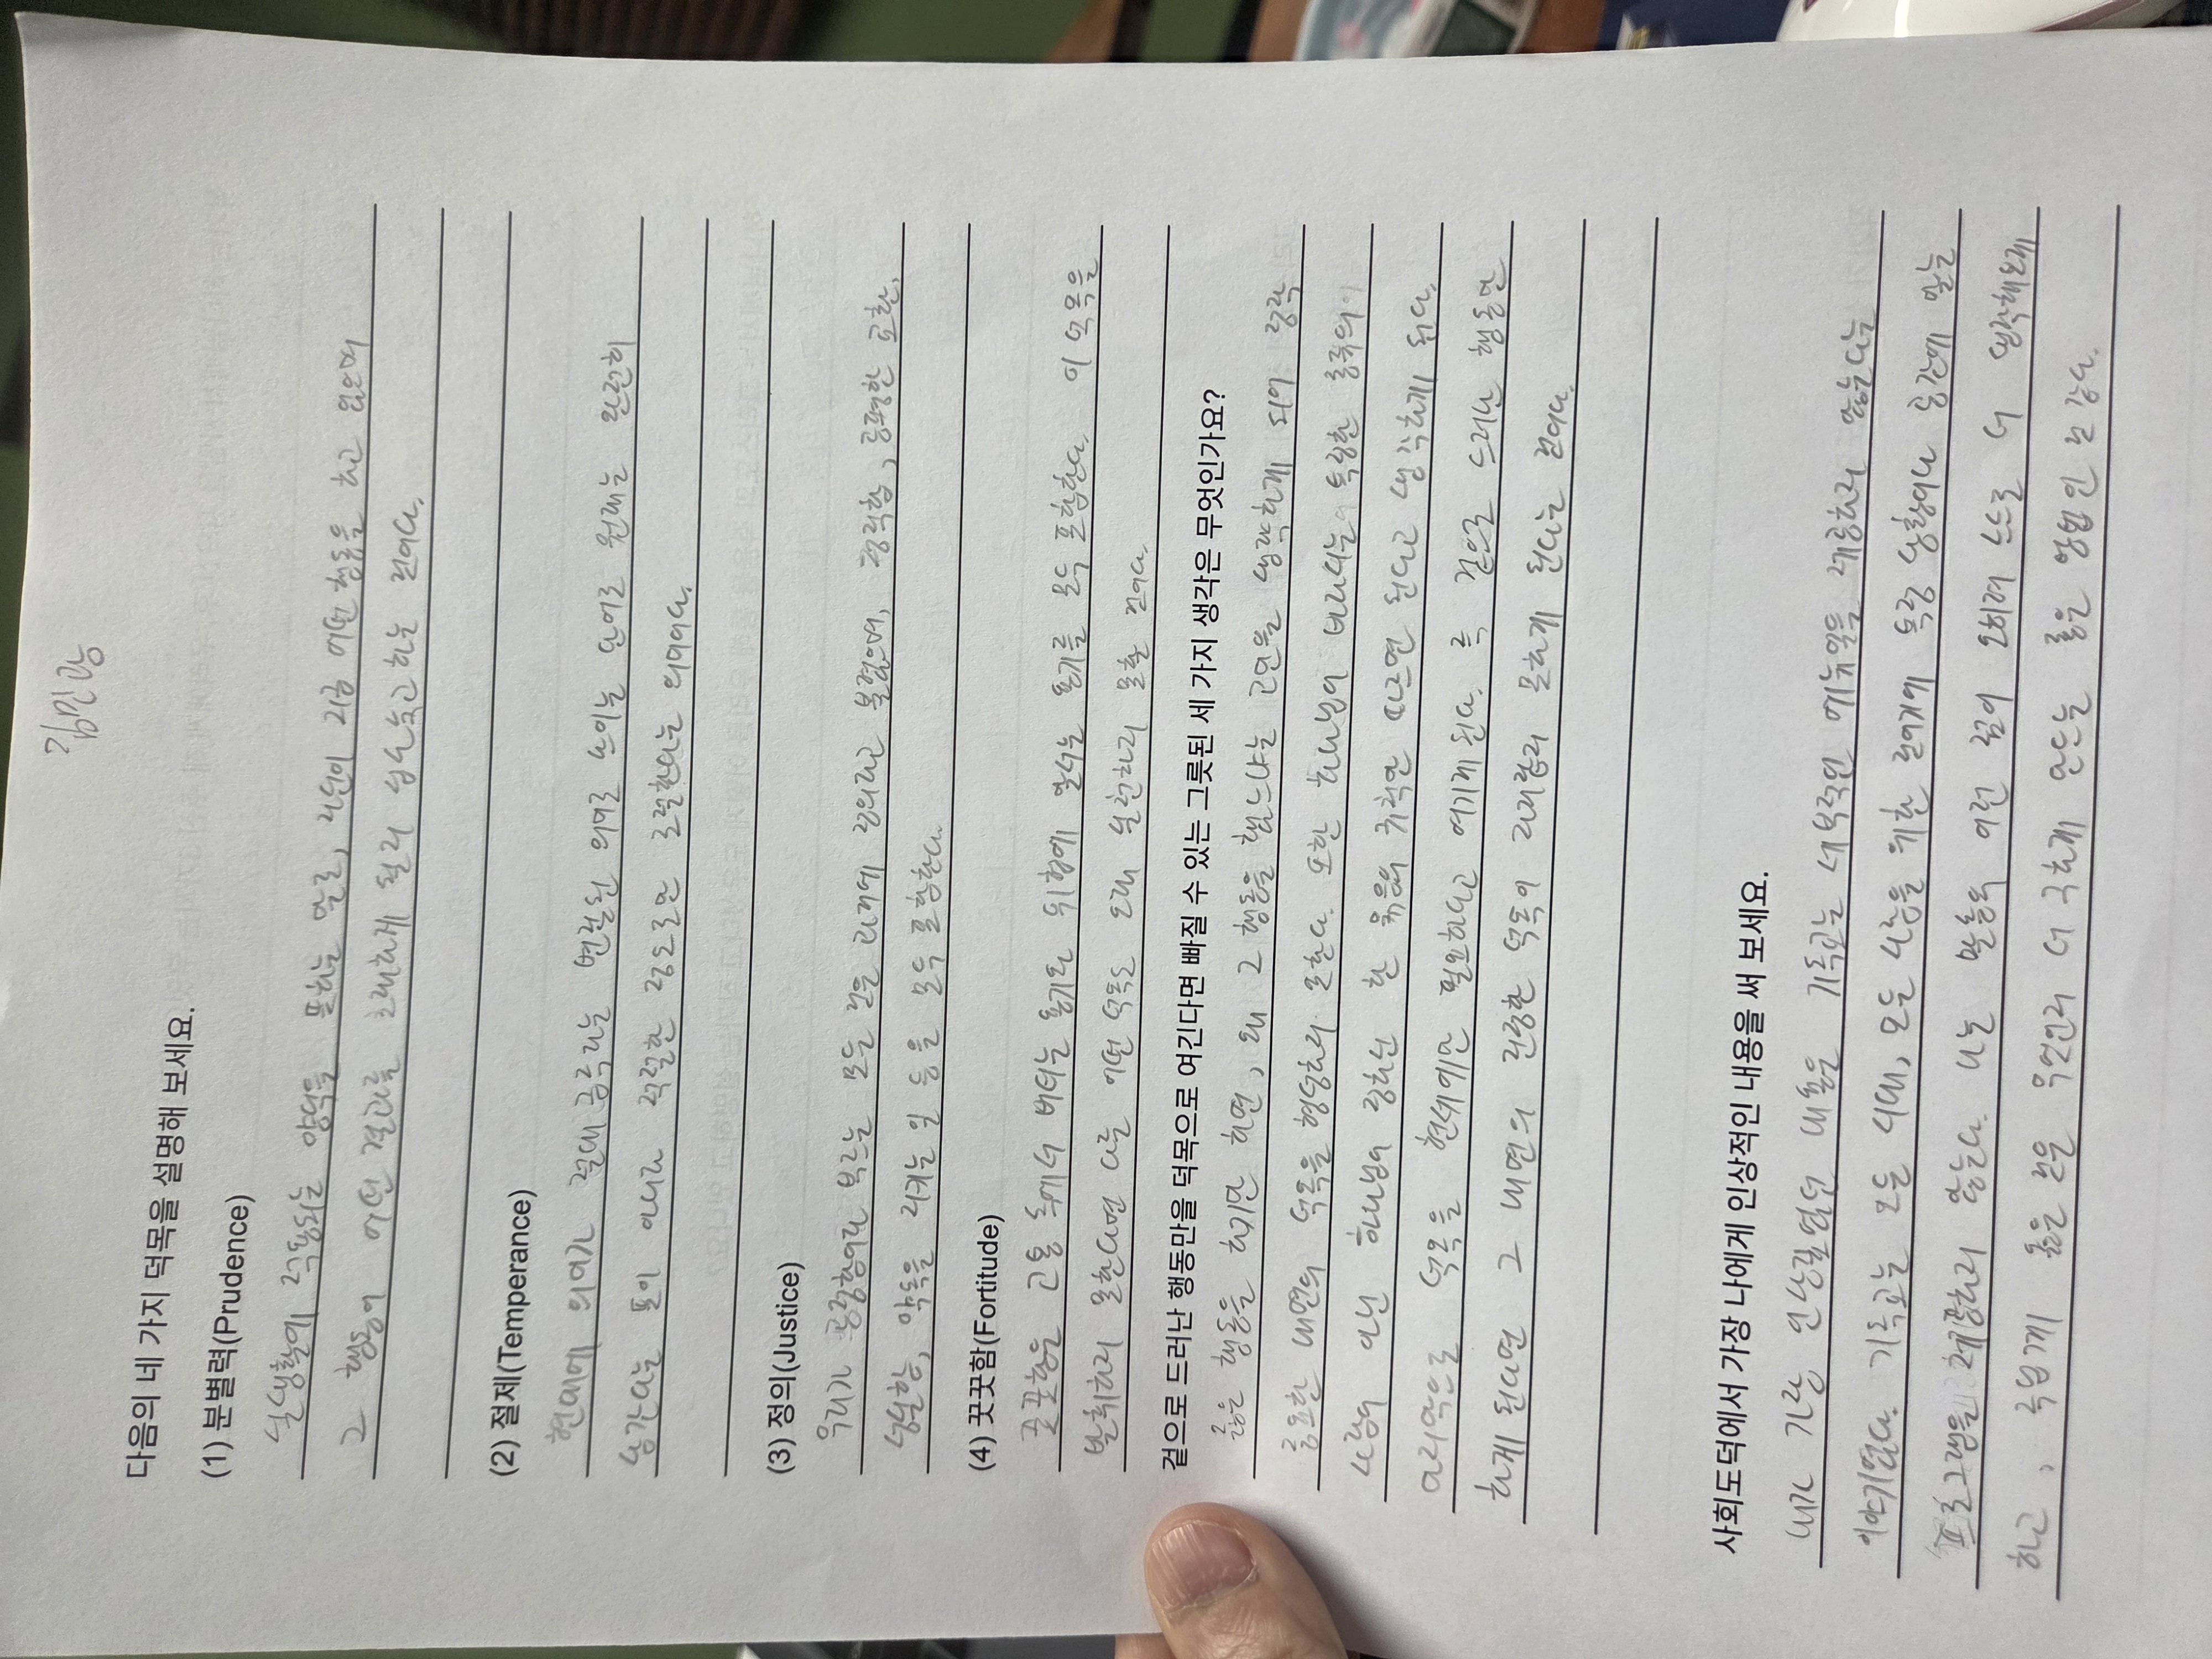 김민광
다음의 네 가지 덕목을 설명해 보세요.
(1) 분별력(Prudence)
실생활에 적용되는 양덕을 뜻하는 말로, 자신이 지금 어떤 행동을 하고 있으며
그 행동이 어떤 결과를 초래하게 될지 심사숙고하는 것이다.
(2) 절제(Temperance)
현대에 의미가 절대 금주라는 변질된 의미로 쓰이는 단어로 원래는 완전히
삼간다는 뜻이 아니라 적절한 정도로만 조절한다는 의미이다.
(3) 정의(Justice)
우리가 공정함이라 부르는 모든 것을 과거에 정의라고 불렀으며, 정직함, 공평한 교환,
성실함, 약속을 지키는 일 등을 모두 포함한다.
(4) 꿋꿋함(Fortitude)
꿋꿋함은 고통 속에서 버티는 용기와 위험에 맞서는 용기를 모두 포함한다. 이 덕목을
발휘하지 못한다면 다른 어떤 덕목도 오래 실천하지 못할 것이다.
겉으로 드러난 행동만을 덕목으로 여긴다면 빠질 수 있는 그릇된 세 가지 생각은 무엇인가요?
옳은 행동을 하기만 하면, 왜 그 행동을 했느냐는 고민을 생략하게 되어 정작
중요한 내면의 덕목을 형성하지 못한다. 또한 하나님이 바라시는 특정한 종류의
사람이 아닌 하나님이 정하신 한 묶음의 규칙만 따르면 된다고 생각하게 된다.
마지막으로 덕목을 현세에만 필요하다고 여기게 된다. 즉 겉으로 드러난 행동만
하게 된다면 그 내면의 진정한 덕목이 자리잡지 못하게 된다는 것이다.
사회도덕에서 가장 나에게 인상적인 내용을 써 보세요.
내가 가장 인상깊었던 내용은 기독교는 세부적인 메뉴얼을 제공하지 않는다는
이야기였다. 기독교는 모든 시대, 모든 사람을 위한 것이기에 특정 상황이나 공간에 맞는
프로그램을 제공하지 않는다. 나는 말씀의 이런 점이 오히려 스스로 더 생각해보게
하고, 폭넓게 옳은 것은 무엇인지 더 구하게 만드는 좋은 방법인 것 같다.